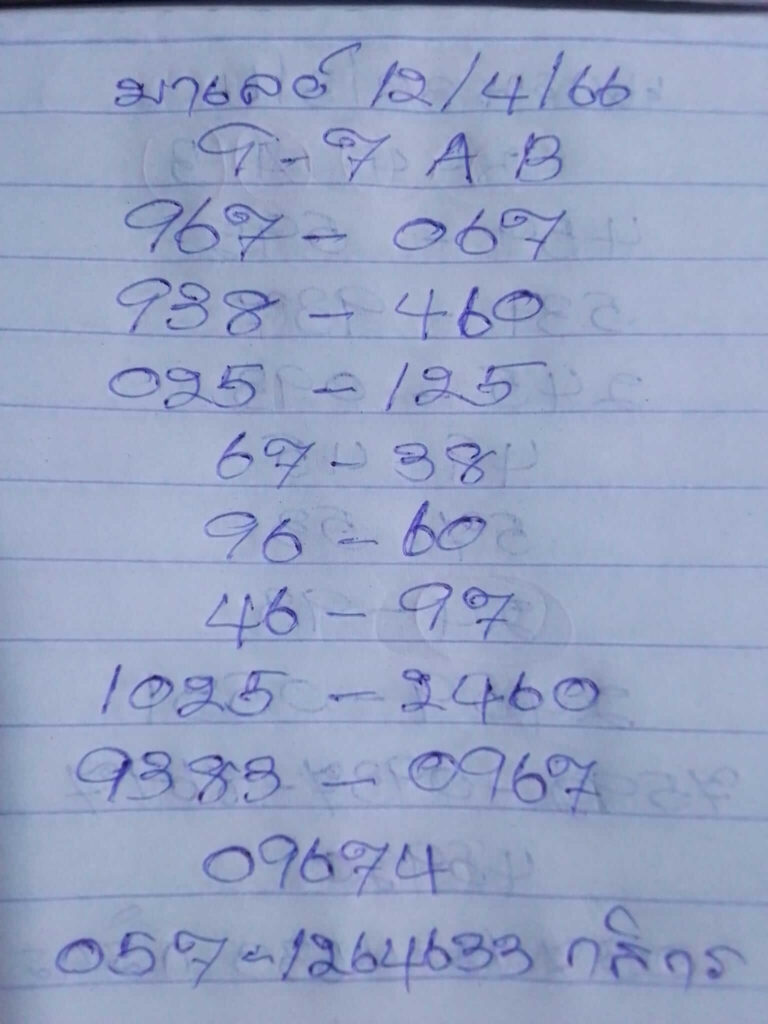 มาเลย์ 12/4/66
9-7 A B
967 - 067
938 - 460
025 - 125
67 - 38
96 - 60
46 - 97
1025 - 2460
9383 - 0967
09674
057-1264633 กสิกร